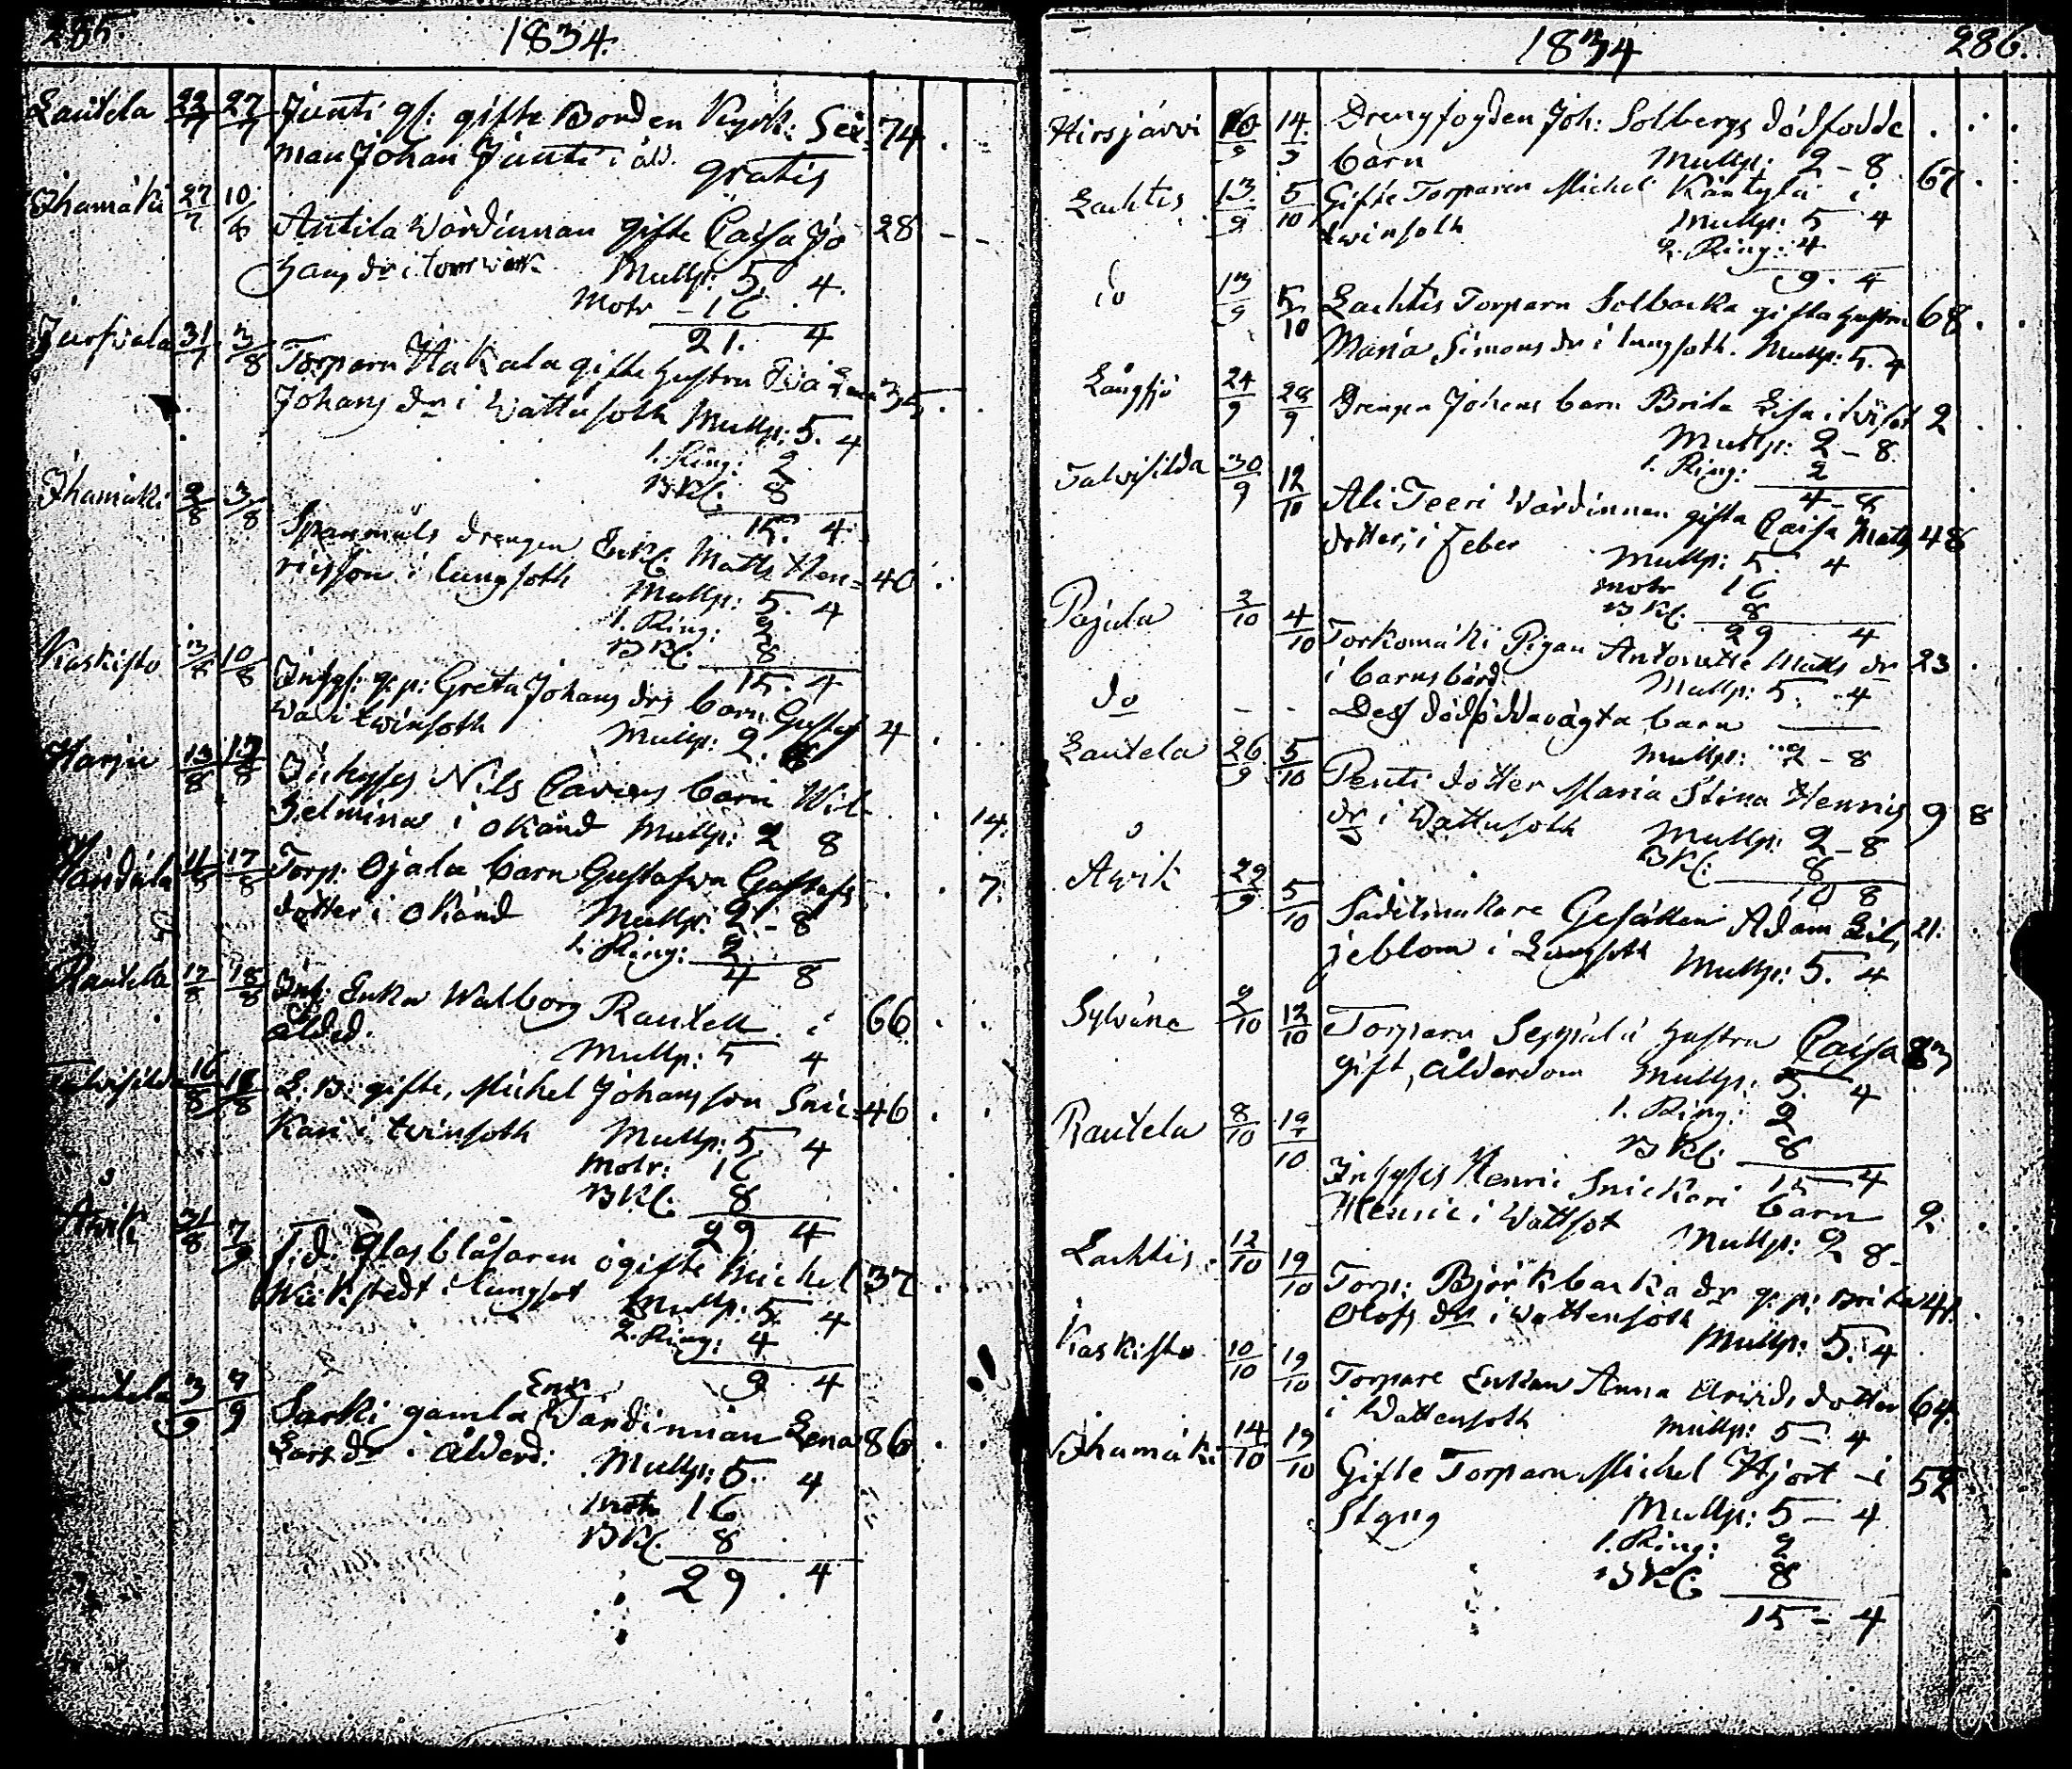 285.
1834.
Lautela 22/7 27/7 Junti gl: gifte Bonden Kyrk: Sex= 74
man Johan Junti i åld. gratis
Ihamäki 27/7 10/8 Antila Värdinnan gifte Caisa Jo 28 - -
hans dr i Mullp: 5. 4.
Motr - 16
21. 4
31/7 3/8 Torparn Hakala gifte hustru Eva Lena 35.
Johans dr i Wattusoth Mullp: 5. 4
1. Ring: 2
B Kl. 8
15. 4.
Ihamäki 2/8 3/8 Spanmåls drengen Enkl. Matts Hen= 40
ricsson i lungsoth Mullp: 5. 4
1. Ring: 2
B Kl. 8
15. 4
Kaskisto 3/8 10/8 Inhys: q: p: Greta Johans drs barn Gustaf 4
i twinsoth Mullp: 2. 8
Harju 13/8 17/8 Inhyses Nils Caviers barn Wil 14.
helmina i okänd Mullp: 2 8
17/8 Torp: Ojala barn Gustafva Gustafs 7.
dotter i okänd Mullp: 2 - 8
1. Ring: 2
4 8
Rautela 17/8 18/8 Inh: Enka Walborg Rautell i 66
ålded. Mullp: 5 4
Talvisilda 16/8 18/8 L: B: gifte, Michel Johansson Snic= 46
kari i twinsoth Mullp: 5 4
Motr: 16
B Kl. 8
29 4
Åvik 31/8 7/9 f. d. Glasblåsaren ogifte Michel 37
Wickstedt i lungsot Mullp: 5 4
2. Ring: 4
9 4
Lautela 3/9 7/9 Sarki gamla Enk: Värdinnan Lena 86
Lars dr i Ålderd: Mullp: 5. 4
Motr 16
B Kl. 8
29. 4
1834
286.
Hirsjärvi 10/9 14/9 Drengfogden Joh: Solbergs dödfödde
barn Mullp: 2 - 8
Lachtis 13/9 5/10 Gifte Torparen Michel Käntylä i 67
twinsoth Mullp: 5 4
2. Ring: 4
9. 4
do 13/9 5/10 Lachtis Torparn Solbacka gifta hustru 68
Maria Simons dr i lungsoth. Mullp: 5. 4
Långsjö 24/9 28/9 Drengen Johans barn Brita Lisa i 2
Mullp: 2 - 8.
1. Ring: 2
4 - 8
Talvisilda 30/9 12/10 Ali Teeri Värdinnan gifta Caisa Mats 48
dotter, i feber Mullp: 5. 4
Motr 16
B Kl. 8
29 4
Pajula 2/10 4/10 Torkomäki Pigan Antonette Matts dr 23
i barnsbörd. Mullp: 5. 4
do - - Dess barn
Mullp: 2 - 8
Lautela 26/9 5/10 Penti dotter Maria Stina Henrics 9 8
dr i Wattusoth Mullp: 2 - 8
B Kl. 8
10 8
Åvik 29/9 5/10 Sadelmakare Gesällen Adam Lil= 21.
jeblom i Lungsoth Mullp: 5. 4
Sylvänä 9/10 12/10 Torparn Seppälä hustru Caisa 83
gift, ålderdom Mullp: 5. 4
1. Ring: 2
B Kl: 8
15 4
Rautela 8/10 19/10 Inhyses Henric Snickari barn
Henric i Wattsot 2
Mullp: 2 8 -
Lachtis 12/10 19/10 Torp: Björkbacka dr q: p: Brita 41.
Olofs dr i Wattensoth Mullp: 5. 4
Kaskisto 10/10 19/10 Torpare Enkan Anna Arvids dotter 64.
i Wattensoth Mullp: 5 4
Ihamäki 14/10 19/10 Gifte Torparn Michel Hjort - i 52
Styng Mullp: 5 - 4
1. Ring: 2
B Kl. 8
15 - 4